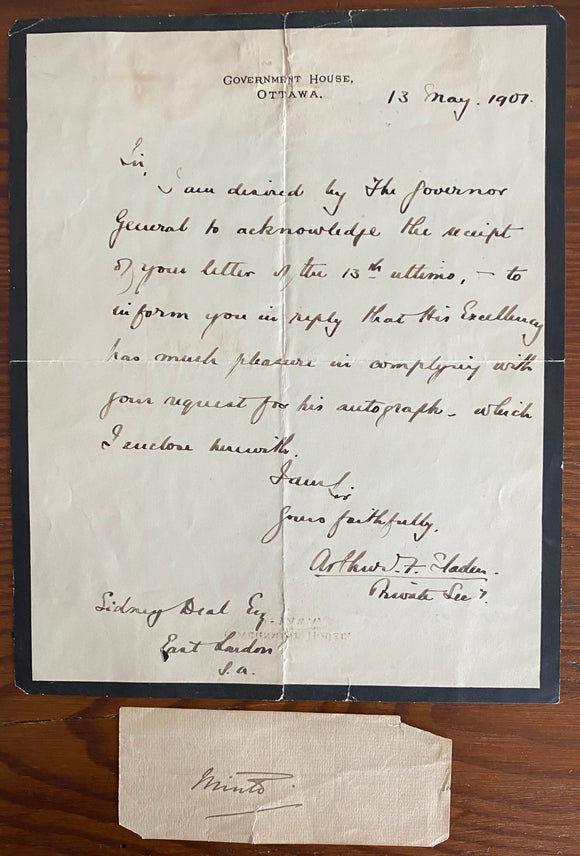 GOVERNMENT HOUSE,
OTTAWA.
13 May. 1901.
Sir,
I am desired by The Governor
General to acknowledge the receipt
of your letter of the 13th ultimo, – to
inform you in reply that His Excellency
has much pleasure in complying with
your request for his autograph – which
I enclose herewith.
I am Sir
Yours faithfully,
Arthur F. Sladen.
Private Secy.
Sidney Deal Esq
East London
S.A.
Minto